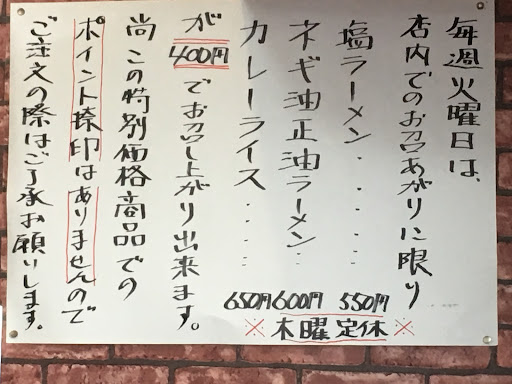 毎週火曜日は、
店内でのお召あがりに限り
塩ラーメン・・・・・550円
ネギ油正油ラーメン・・600円
カレーライス・・・・650円
が400円でお召し上がり出来ます。
尚この特別価格商品での
ポイント捺印はありませんので
ご注文の際はご了承お願いします。
※木曜定休※